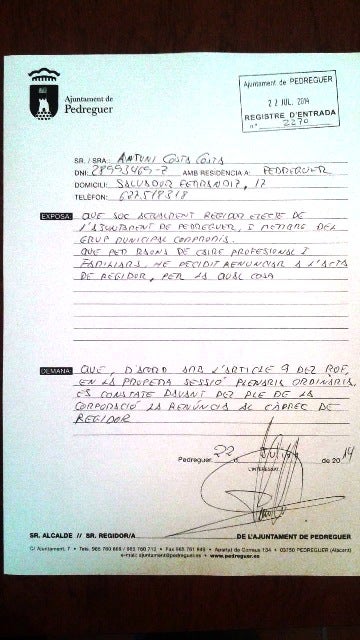 Ajuntament de
Pedreguer
Ajuntament de PEDREGUER
22 JUL. 2014
REGISTRE D'ENTRADA
nº 2270
SR. / SRA.: ANTONI COSTA COSTA
DNI: 28993469-Z AMB RESIDÈNCIA A: PEDREGUER
DOMICILI: SALVADOR FERRANDIZ, 17
TELÈFON: 627518318
EXPOSA: QUE SOC ACTUALMENT REGIDOR ELECTE DE
L'AJUNTAMENT DE PEDREGUER, I MEMBRE DEL
GRUP MUNICIPAL COMPROMIS.
QUE PER RAONS DE CAIRE PROFESSIONAL I
FAMILIARS, HE DECIDIT RENUNCIAR A L'ACTA
DE REGIDOR, PER LA QUAL COSA
DEMANA: QUE, D'ACORD AMB L'ARTICLE 9 DEL ROF,
EN LA PROPERA SESSIÓ PLENARIA ORDINÀRIA,
ES CONSTATE DAVANT DEL PLE DE LA
CORPORACIÓ LA RENÚNCIA AL CÀRREC DE
REGIDOR
Pedreguer, 22 de 2014
L'INTERESSAT
SR. ALCALDE // SR. REGIDOR/A DE L'AJUNTAMENT DE PEDREGUER
C/ Ajuntament, 7 • Tels. 965 760 669 / 965 760 712 • Fax 965 761 949 • Apartat de Correus 134 • 03750 PEDREGUER (Alacant)
e-mail: ajuntament@pedreguer.es • www.pedreguer.es